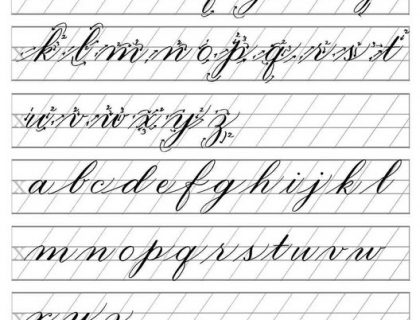 k l m n o p q r s t
u v w x y z
a b c d e f g h i j k l
m n o p q r s t u v w
x y z